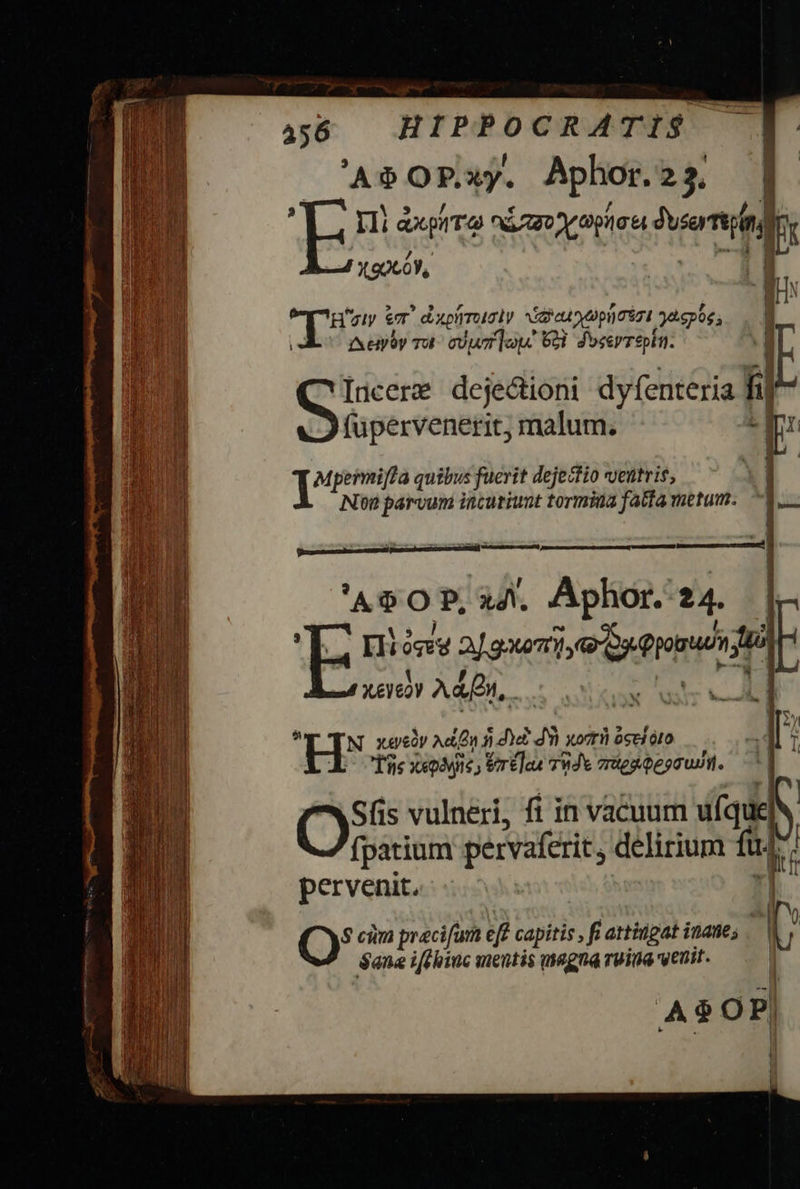 256 HIPPOCRATIS
ἈΦΟΡ. κγ. Aphor. 23.
Ἐπὶ ἀκρήτῳ ὑποχωρήσει δυσεντερίη,
κακόν,
Ἦσιν ἐπ' ἀκρήτοισιν ὑποχωρήσεσι γαστρός,
Δεινὸν τὸ σύμπτωμ' ἐπὶ δυσεντερίη.
Sinceræ dejectioni dyſenteria ſi
ſupervenerit, malum.
Impermiſta quibus fuerit dejectio ventris,
Non parvum incutiunt tormina facta metum.
ἈΦΟΡ. κδ. Aphor. 24.
Ἐπὶ ὀστέου διακοπῇ, παραφροσύνη,
κενεὸν λάβῃ.
Ἢν κενεὸν λάβῃ ἡ διὰ δὴ κοπὴ ὀστέοιο
Τῆς κεφαλῆς, ἕπεται τῇδε παραφροσύνη.
OSſis vulneri, ſi in vacuum uſque
ſpatium pervaſerit, delirium ſu-
pervenit.
OS cùm præciſum eſt capitis, ſi attingat inane,
Sane iſthinc mentis magna ruina venit.
ἈΦΟΡ